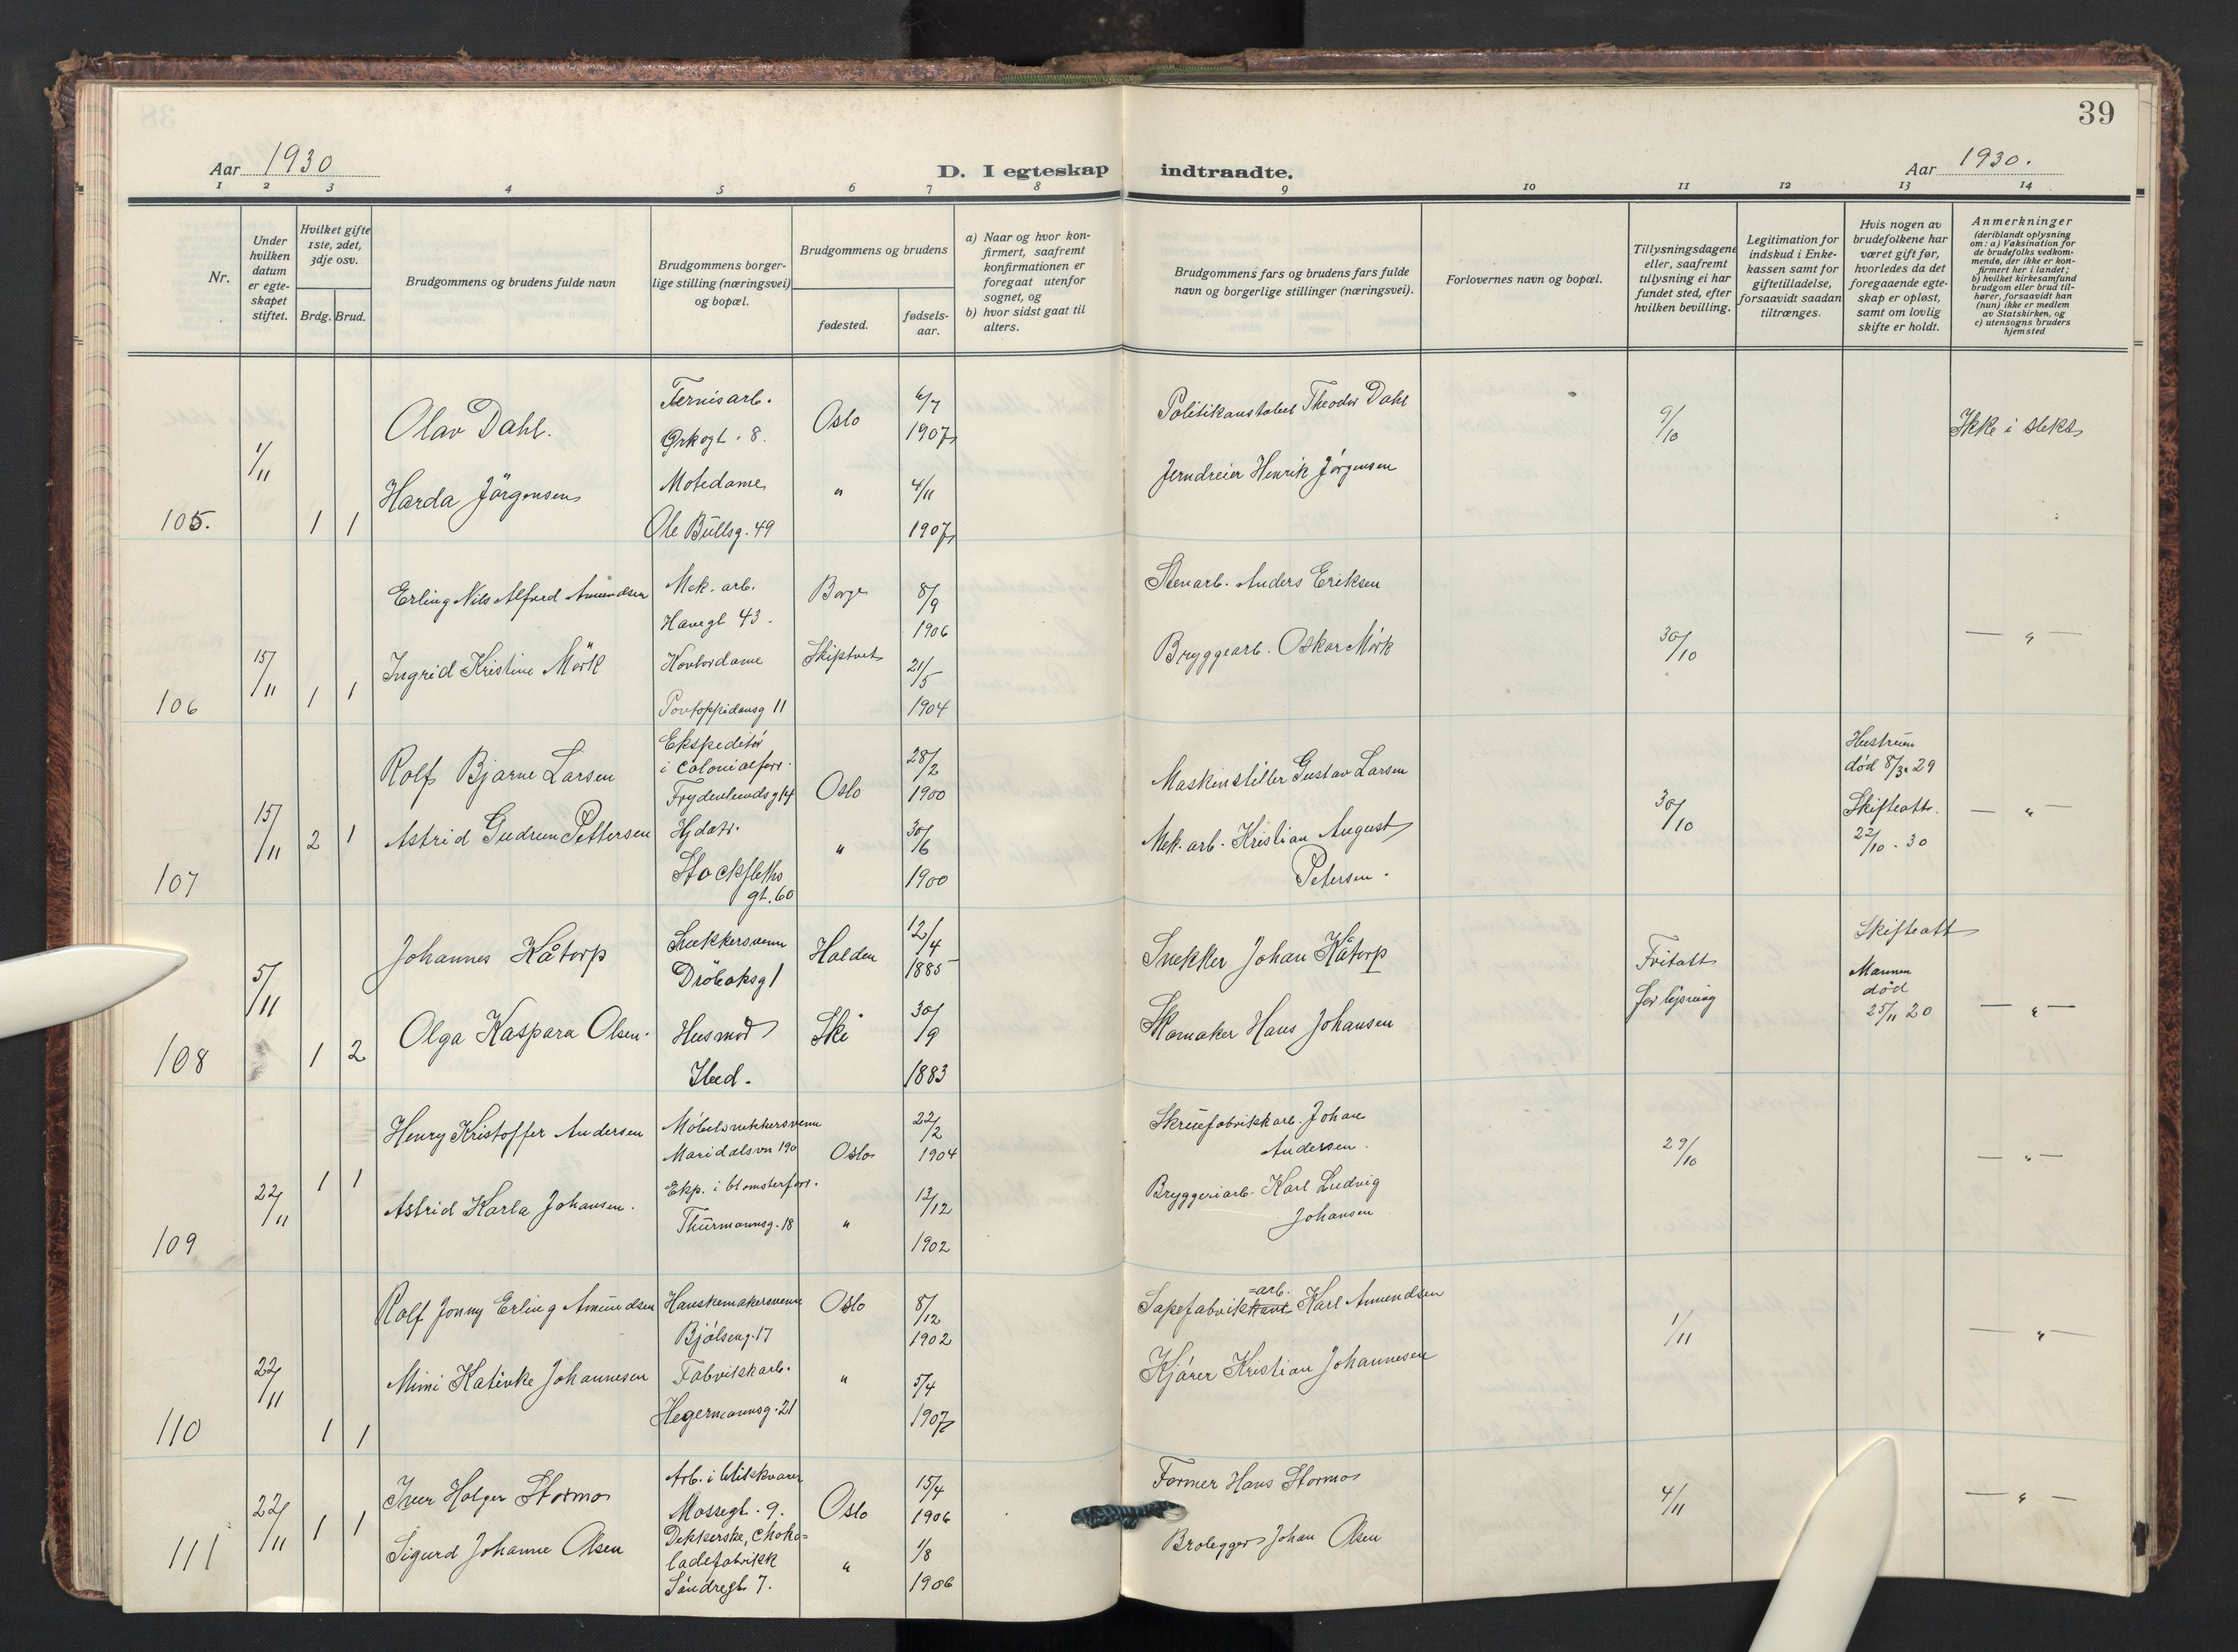 39
Aar 1930
D. I egteskap indtraadte.
Aar 1930.
1 2 3 4 5 6 7 8 9 10 11 12 13 14
Nr.
Under
hvilken
datum
er egte-
skapet
stiftet.
Hvilket gifte
1ste, 2det,
3dje osv.
Brdg. Brud.
Brudgommens og brudens fulde navn
Brudgommens borger-
lige stilling (næringsvei)
og bopæl.
Brudgommens og brudens
fødested.
fødsels-
aar.
a) Naar og hvor kon-
firmert, saafremt
konfirmationen er
foregaat utenfor
sognet, og
b) hvor sidst gaat til
alters.
Brudgommens fars og brudens fars fulde
navn og borgerlige stillinger (næringsvei).
Forlovernes navn og bopæl.
Tillysningsdagene
eller, saafremt
tillysning ei har
fundet sted, efter
hvilken bevilling.
Legitimation for
indskud i Enke-
kassen samt for
giftetilladelse,
forsaavidt saadan
tiltrænges.
Hvis nogen av
brudefolkene har
været gift før,
hvorledes da det
foregaaende egte-
skap er opløst,
samt om lovlig
skifte er holdt.
Anmerkninger
(deriblandt oplysning
om: a) Vaksination for
de brudefolks vedkom-
mende, der ikke er kon-
firmert her i landet;
b) hvilket kirkesamfund
brudgom eller brud til-
hører, forsaavidt han
(hun) ikke er medlem
av Statskirken, og
c) utensogns bruders
hjemsted
105.
1/11
1 1
Olav Dahl.
Fernisarb.
gt. 8.
Oslo
6/7
1907
Politikonstabel Theodor Dahl
9/10
Ikke i slekt
Harda Jörgensen
Motedame
Ole Bullsg. 49
"
4/11
1907
Jerndreier Henrik Jörgensen
106
15/11
1 1
Erling Nils Alfred Amundsen
Mek. arb.
Havegt 43.
Borge
8/9
1906
Stenarb. Anders Eriksen
30/10
— " —
Ingrid Kristine Mörk
Kontordame
Pontoppidansg 11
Skiptvet
21/5
1904
Bryggearb. Oskar Mörk
107
15/11
2 1
Rolf Bjarne Larsen
Ekspeditör
i Colonialforr.
Frydenlundsg 14
Oslo
28/2
1900
Maskinstiller Gustav Larsen
30/10
Hustruen
död 8/3. 29
Skifteatt.
22/10. 30
— " —
Astrid Gudrun Pettersen
Hj datr.
Stockfleths
gt. 60
"
30/6
1900
Mek. arb. Kristian August
Petersen.
108
5/11
1 2
Johannes Kåtorp
Snekkersvenn
Dröbaksg 1
Halden
12/4
1885
Snekker Johan Kåtorp
Fritatt
for lysning
Skifteatt
Mannen
død
25/11 20
— " —
Olga Kaspara Olsen.
Husmod
Ibid.
Ski
30/9
1883
Skomaker Hans Johansen
109
22/11
1 1
Henry Kristoffer Andersen
Möbelsnekkersvenn
Maridalsvn 190
Oslo
22/2
1904
Skruefabrikkarb. Johan
Andersen.
29/10
— " —
Astrid Karla Johansen.
Eksp. i blomsterforr.
Thurmannsg. 18
"
12/12
1902
Bryggeriarb. Karl Ludvig
Johansen
110
22/11
1 1
Rolf Jonny Erling Amundsen
Hanskemakersvenn
Bjölseng. 17
Oslo
8/12
1902
=arb.
Sæpefabrikkant Karl Amundsen
1/11
— " —
Mimi Katinke Johannesen
Fabrikkarb.
Hegermannsg. 21
"
5/4
1907
Kjörer Kristian Johannesen
111
22/11
1 1
Iver Holger Stormo
Arb. i blikkvarer
Mossegt. 9.
Oslo
15/4
1906
Former Hans Stormo
4/11
— " —
Sigurd Johanne Olsen
Dekkerske, choko=
ladefabrikk
Söndregt 7.
"
1/8
1906
Brolegger Johan Olsen